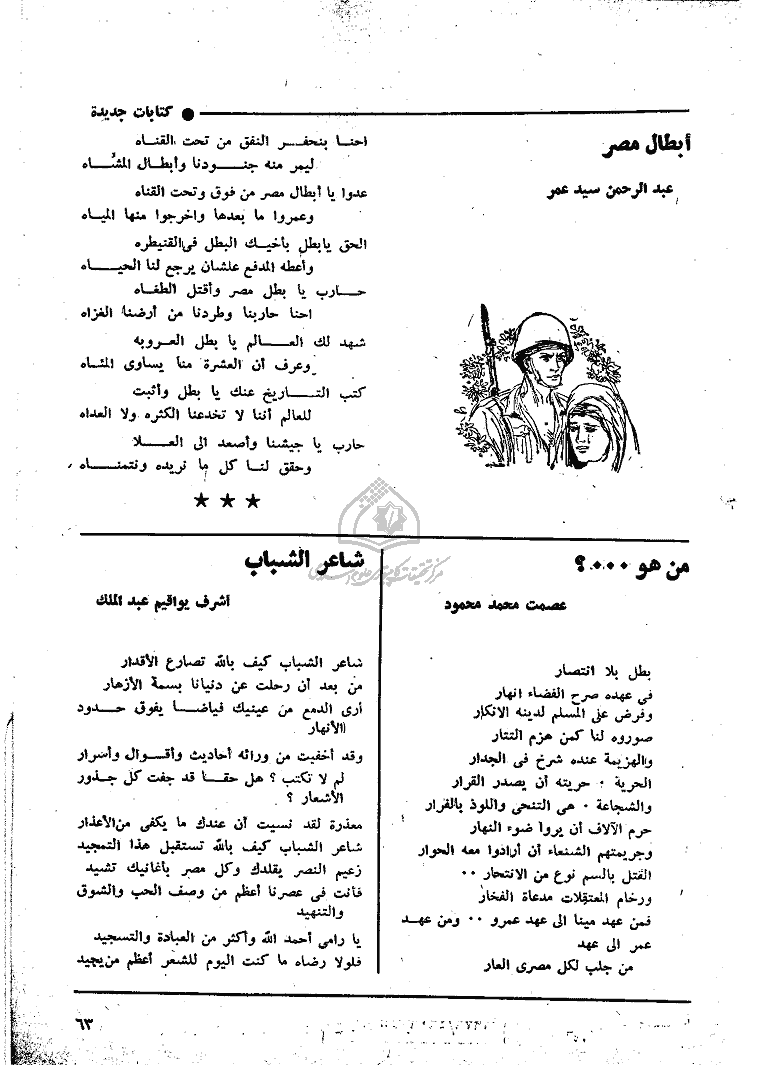 كتابات جديدة
أبطال مصر
عبد الرحمن سيد عمر
احنا بنحفر النفق من تحت القناه
ليمر منه جنودنا وأبطال المشاه
عدوا يا أبطال مصر من فوق وتحت القناه
وعمروا ما بعدها واخرجوا منها المياه
الحق يابطل بأخيك البطل فى القنيطره
وأعطه المدفع علشان يرجع لنا الحياه
حارب يا بطل مصر وأقتل الطفاه
احنا حاربنا وطردنا من أرضنا الغزاه
شهد لك العالم يا بطل العروبه
وعرف أن العشرة منا يساوى المئاه
كتب التاريخ عنك يا بطل وأثبت
للعالم أننا لا تخدعنا الكثره ولا العداه
حارب يا جيشنا وأصعد الى العلا
وحقق لنا كل ما نريده ونتمناه
★ ★ ★
من هو ٠٠٠؟
عصمت محمد محمود
بطل بلا انتصار
فى عهده صرح القضاء انهار
وفرض على المسلم لدينه الانكار
صوروه لنا كمن هزم التتار
والهزيمة عنده شرخ فى الجدار
الحرية ؛ حريته أن يصدر القرار
والشجاعة ٠ هى التنحى واللوذ بالفرار
حرم الآلاف أن يروا ضوء النهار
وجريمتهم الشنعاء أن أرادوا معه الحوار
القتل بالسم نوع من الانتحار ٠٠
ورخام المعتقلات مدعاة الفخار
فمن عهد مينا الى عهد عمرو ٠٠ ومن عهد
عمر الى عهد
من جلب لكل مصرى العار
شاعر الشباب
أشرف يواقيم عبد الملك
شاعر الشباب كيف بالله تصارع الأقدار
من بعد أن رحلت عن دنيانا بسمة الأزهار
أرى الدمع من عينيك فياضا يفوق حدود
الأنهار
وقد أخفيت من ورائه أحاديث وأقوال وأسرار
لم لا تكتب ؟ هل حقا قد جفت كل جذور
الأشعار ؟
معذرة لقد نسيت أن عندك ما يكفى من الأعذار
شاعر الشباب كيف بالله تستقبل هذا التمجيد
زعيم النصر يقلدك وكل مصر بأغانيك تشيد
فأنت فى عصرنا أعظم من وصف الحب والشوق
والتنهيد
يا رامى أحمد الله وأكثر من العبادة والتسجيد
فلولا رضاه ما كنت اليوم للشعر أعظم من يجيد
٦٣